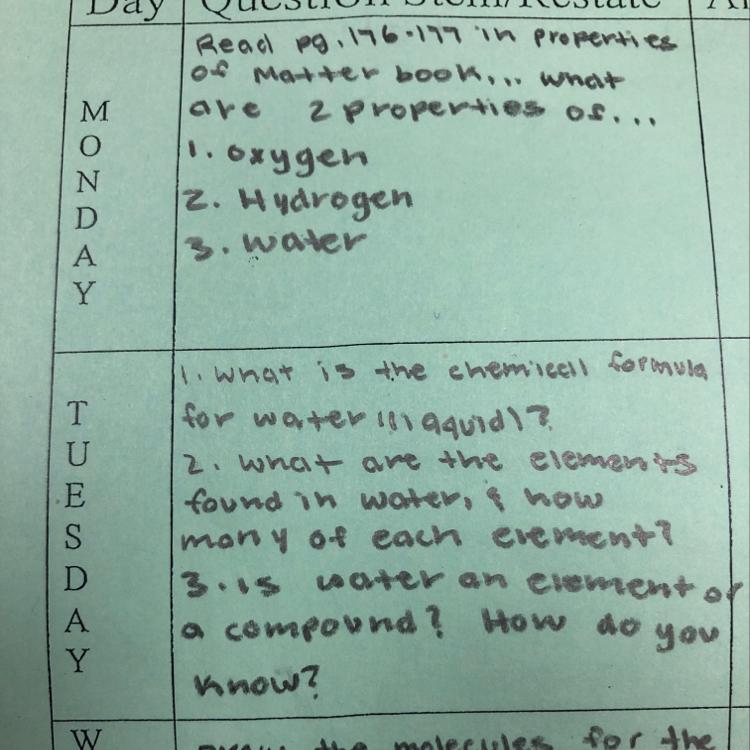 Day Question Stem/Restate
Read pg. 176-177 in properties
of Matter book... what
are 2 properties of...
1. oxygen
2. Hydrogen
3. water
MONDAY
1. What is the chemicell formula
for water (liaquid)?
2. what are the elements
found in water, & how
many of each element?
3. is water an element or
a compound? How do you
know?
TUESDAY
W
the molecules for the